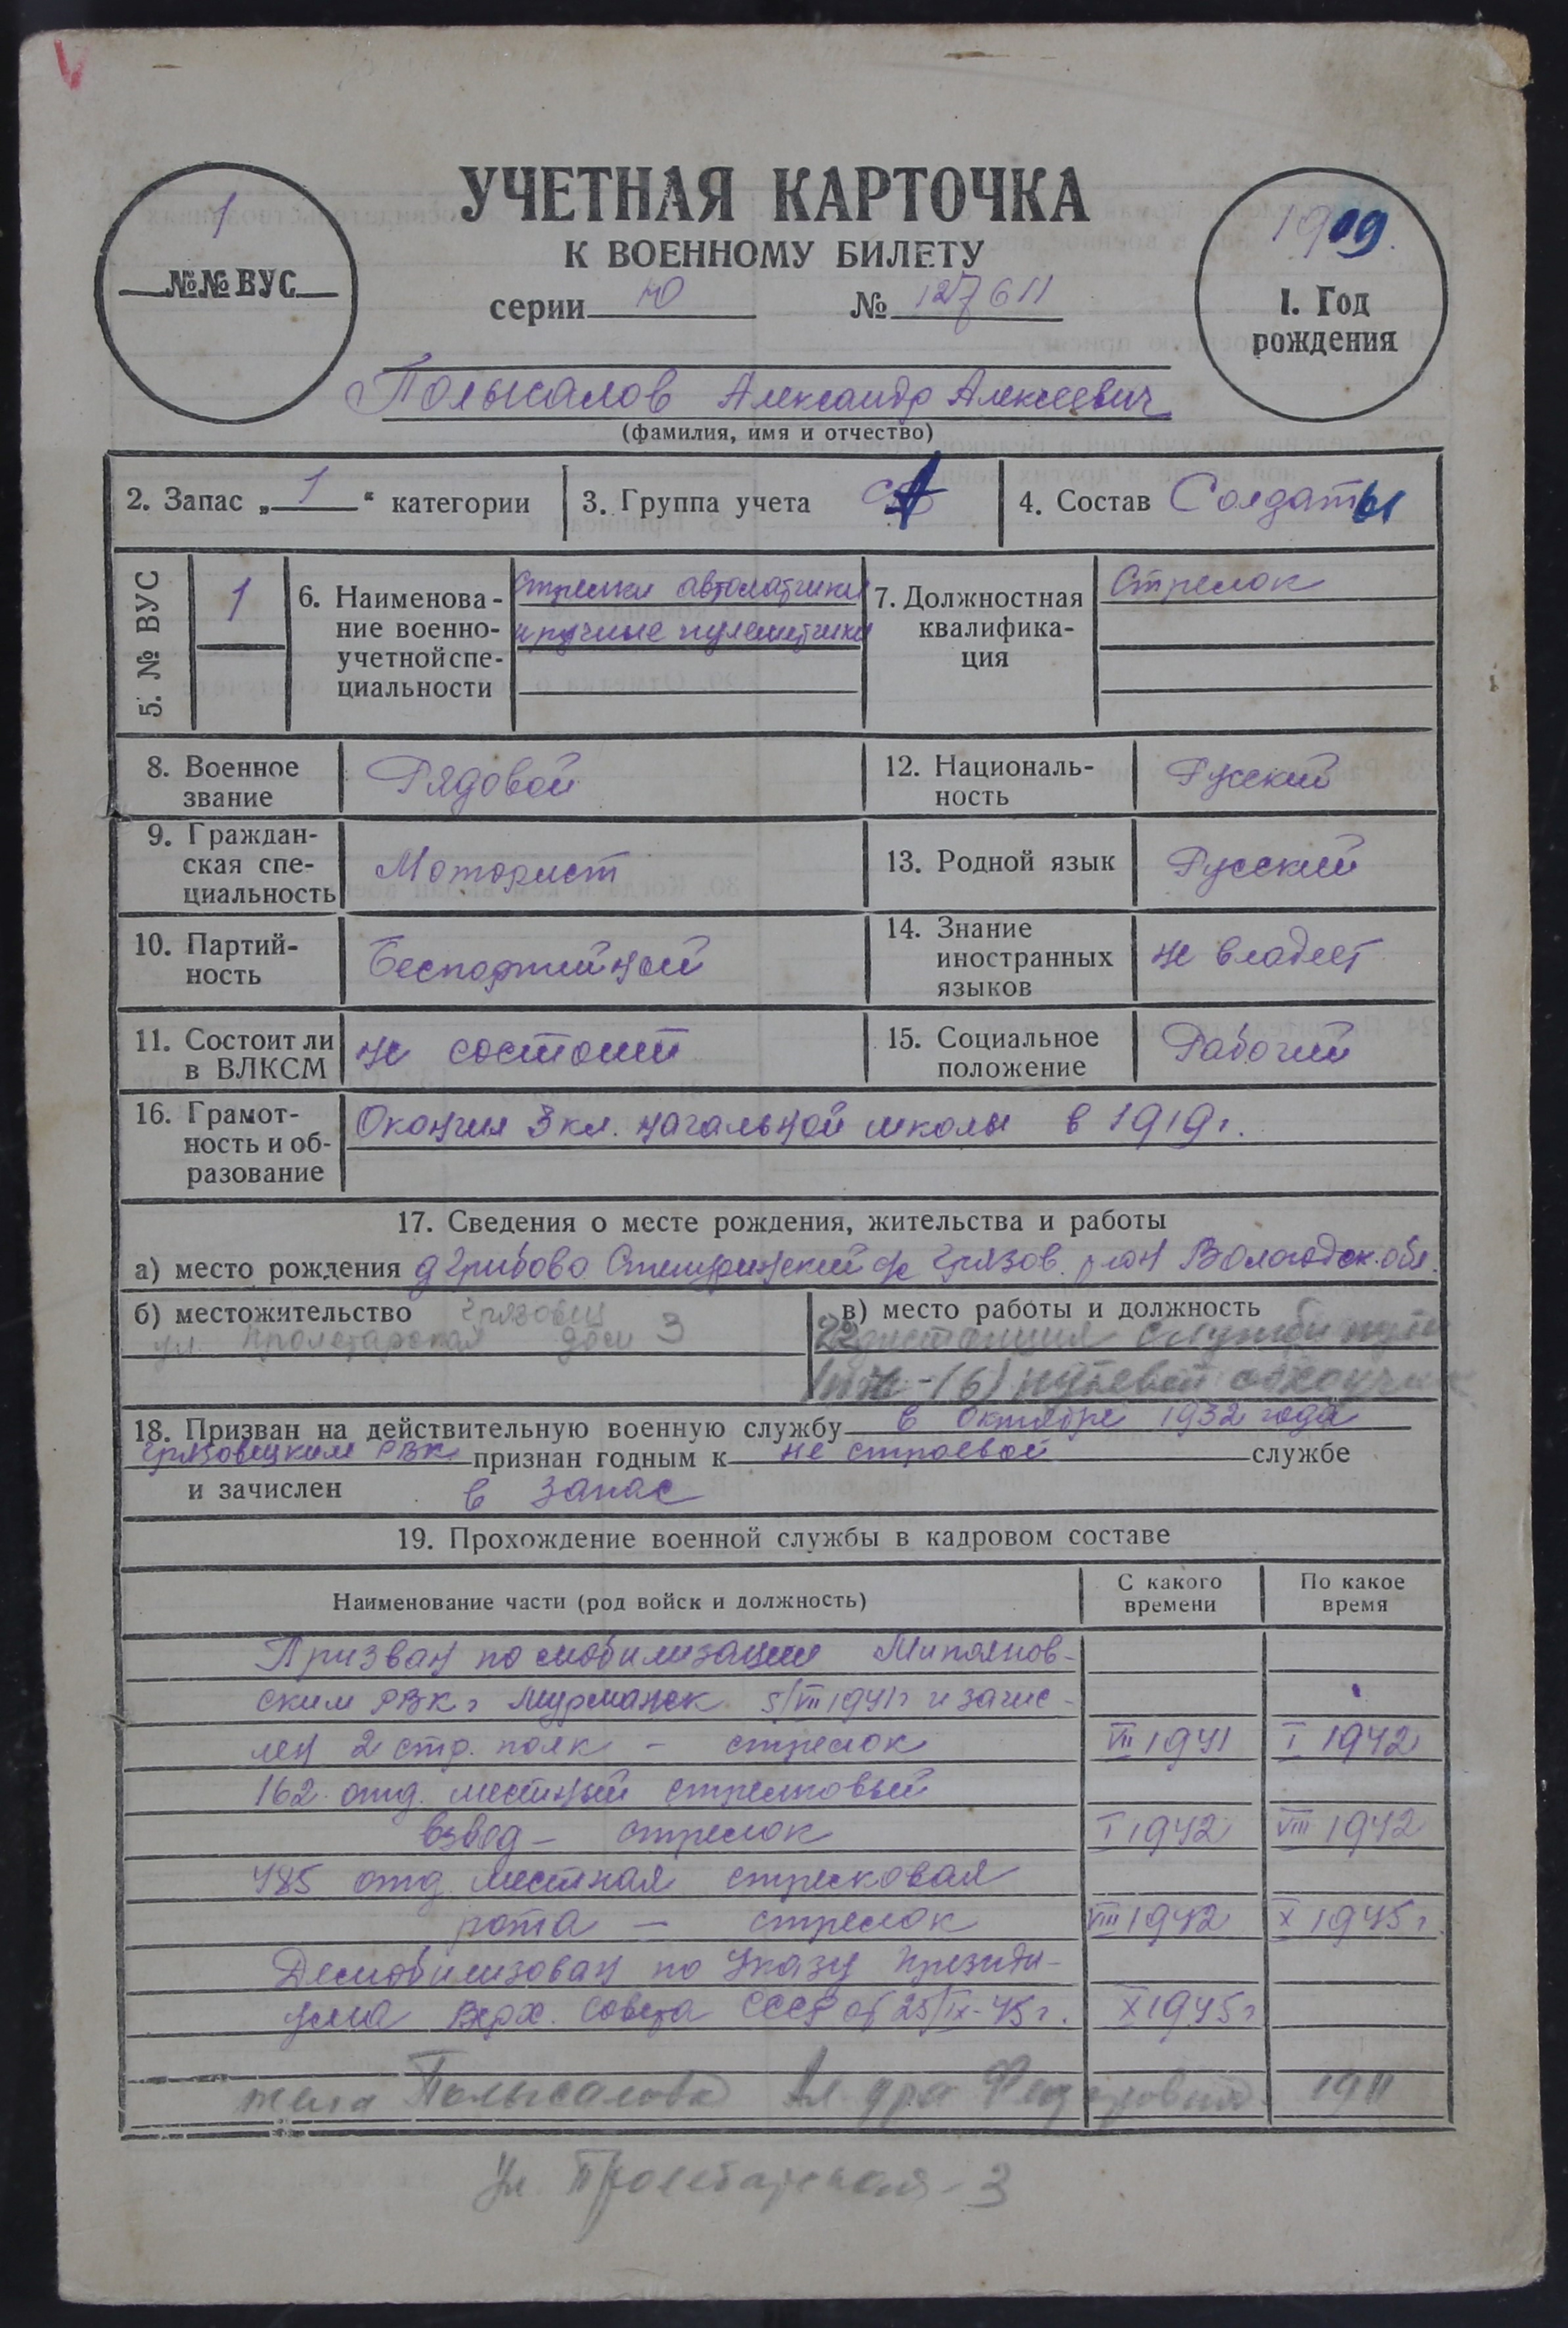 УЧЕТНАЯ КАРТОЧКА
К ВОЕННОМУ БИЛЕТУ
серии Ю № 127611
1
№№ ВУС
1909.
1. Год
рождения
Полысалов Александр Алексеевич
(фамилия, имя и отчество)
2. Запас „1“ категории
3. Группа учета
4. Состав Солдаты
5. № ВУС
1
6. Наименова-
ние военно-
учетной спе-
циальности
Стрелки автоматчики
и ручные пулеметчики
7. Должностная
квалифика-
ция
Стрелок
8. Военное
звание
Рядовой
12. Националь-
ность
Русский
9. Граждан-
ская спе-
циальность
Моторист
13. Родной язык
Русский
10. Партий-
ность
Беспартийный
14. Знание
иностранных
языков
не владеет
11. Состоит ли
в ВЛКСМ
не состоит
15. Социальное
положение
Рабочий
16. Грамот-
ность и об-
разование
Окончил 3 кл. начальной школы в 1919 г.
17. Сведения о месте рождения, жительства и работы
а) место рождения д Грибово с/с Грязов. р-он Вологодск. обл.
б) местожительство Грязовец
ул. Пролетарская дом 3
в) место работы и должность
дистанция службы пути
(6) путевой обходчик
18. Призван на действительную военную службу в октябре 1932 года
Грязовецким РВК признан годным к не строевой службе
и зачислен в запас
19. Прохождение военной службы в кадровом составе
Наименование части (род войск и должность)
С какого
времени
По какое
время
Призван по мобилизации
ским РВК г Мурманск 5/VII 1941 г и зачис-
лен 2 стр. полк – стрелок VII 1941 I 1942
162 отд. местный стрелковый
взвод – стрелок I 1942 VIII 1942
485 отд. местная стрелковая
рота – стрелок VIII 1942 X 1945 г.
Демобилизован по Указу Президи-
ума Верх. Совета СССР от 25/IX-45 г. X 1945 г
жена Полысалова Ал-дра Федоровна 1911
Ул Пролетарская - 3